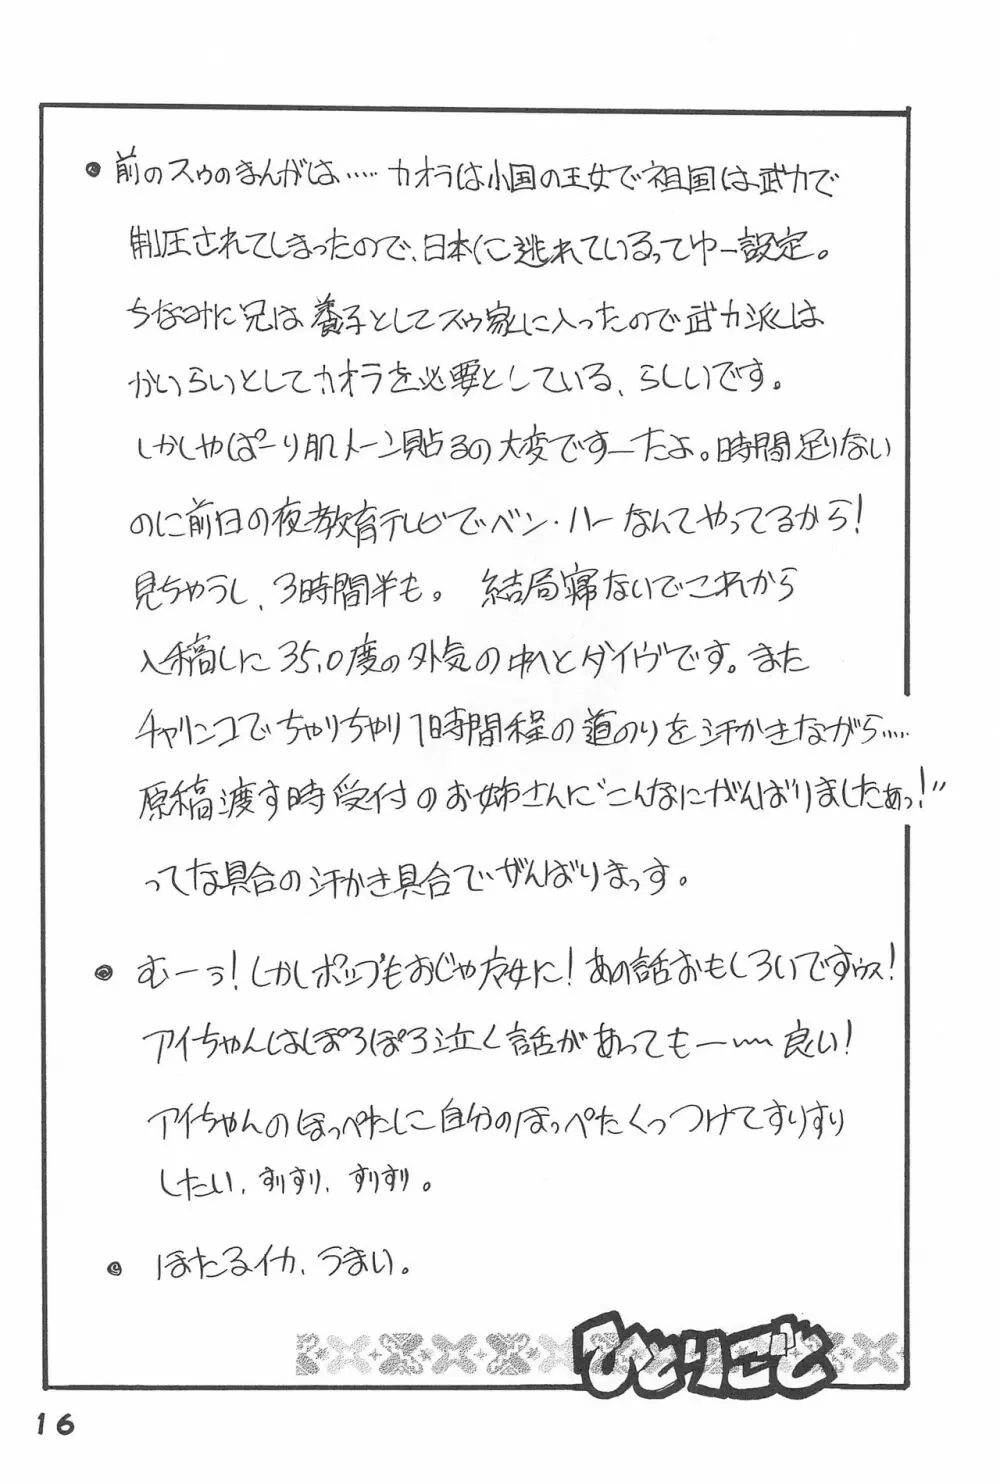 ● 前のスゥのまんがは‥‥‥カオラは小国の王女で祖国は武力で
制圧されてしまったので、日本に逃れているってゆー設定。
ちなみに兄は養子としてスゥ家に入ったので武力派は
かいらいとしてカオラを必要としている、らしいです。
しかしやぱーり肌トーン貼るの大変ですーたよ。時間足りない
のに前日の夜教育テレビでベン・ハーなんてやってるから!
見ちゃうし、3時間半も。 結局寝ないでこれから
入稿しに35.0度の外気の中へとダイヴです。また
チャリンコでちゃりちゃり1時間程の道のりを汗かきながら‥‥‥
原稿渡す時受付のお姉さんに〝こんなにがんばりましたぁっ!〟
ってな具合の汗かき具合でぜんばりまっす。
● むーぅ!しかしポップもおじゃ魔女に!あの話おもしろいですぅス!
アイちゃんはぽろぽろ泣く話があっても―〜〜良い!
アイちゃんのほっぺたに自分のほっぺたくっつけてすりすり
したい、すりすり、すりすり。
● ほたるイカ、うまい。
ひとりごと
16